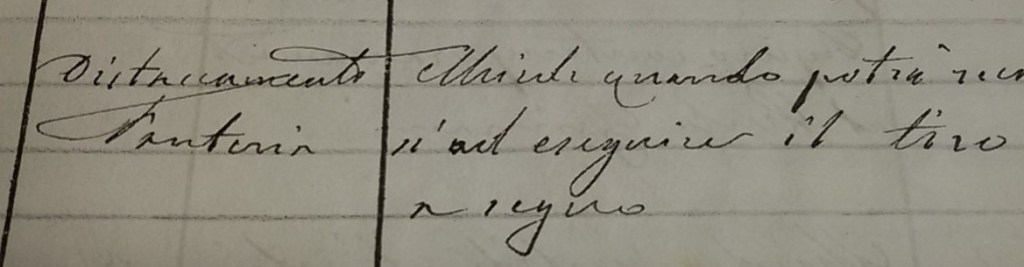 Distaccamento Chiede quando potrà recar
Fanteria si ad eseguire il tiro
a segno